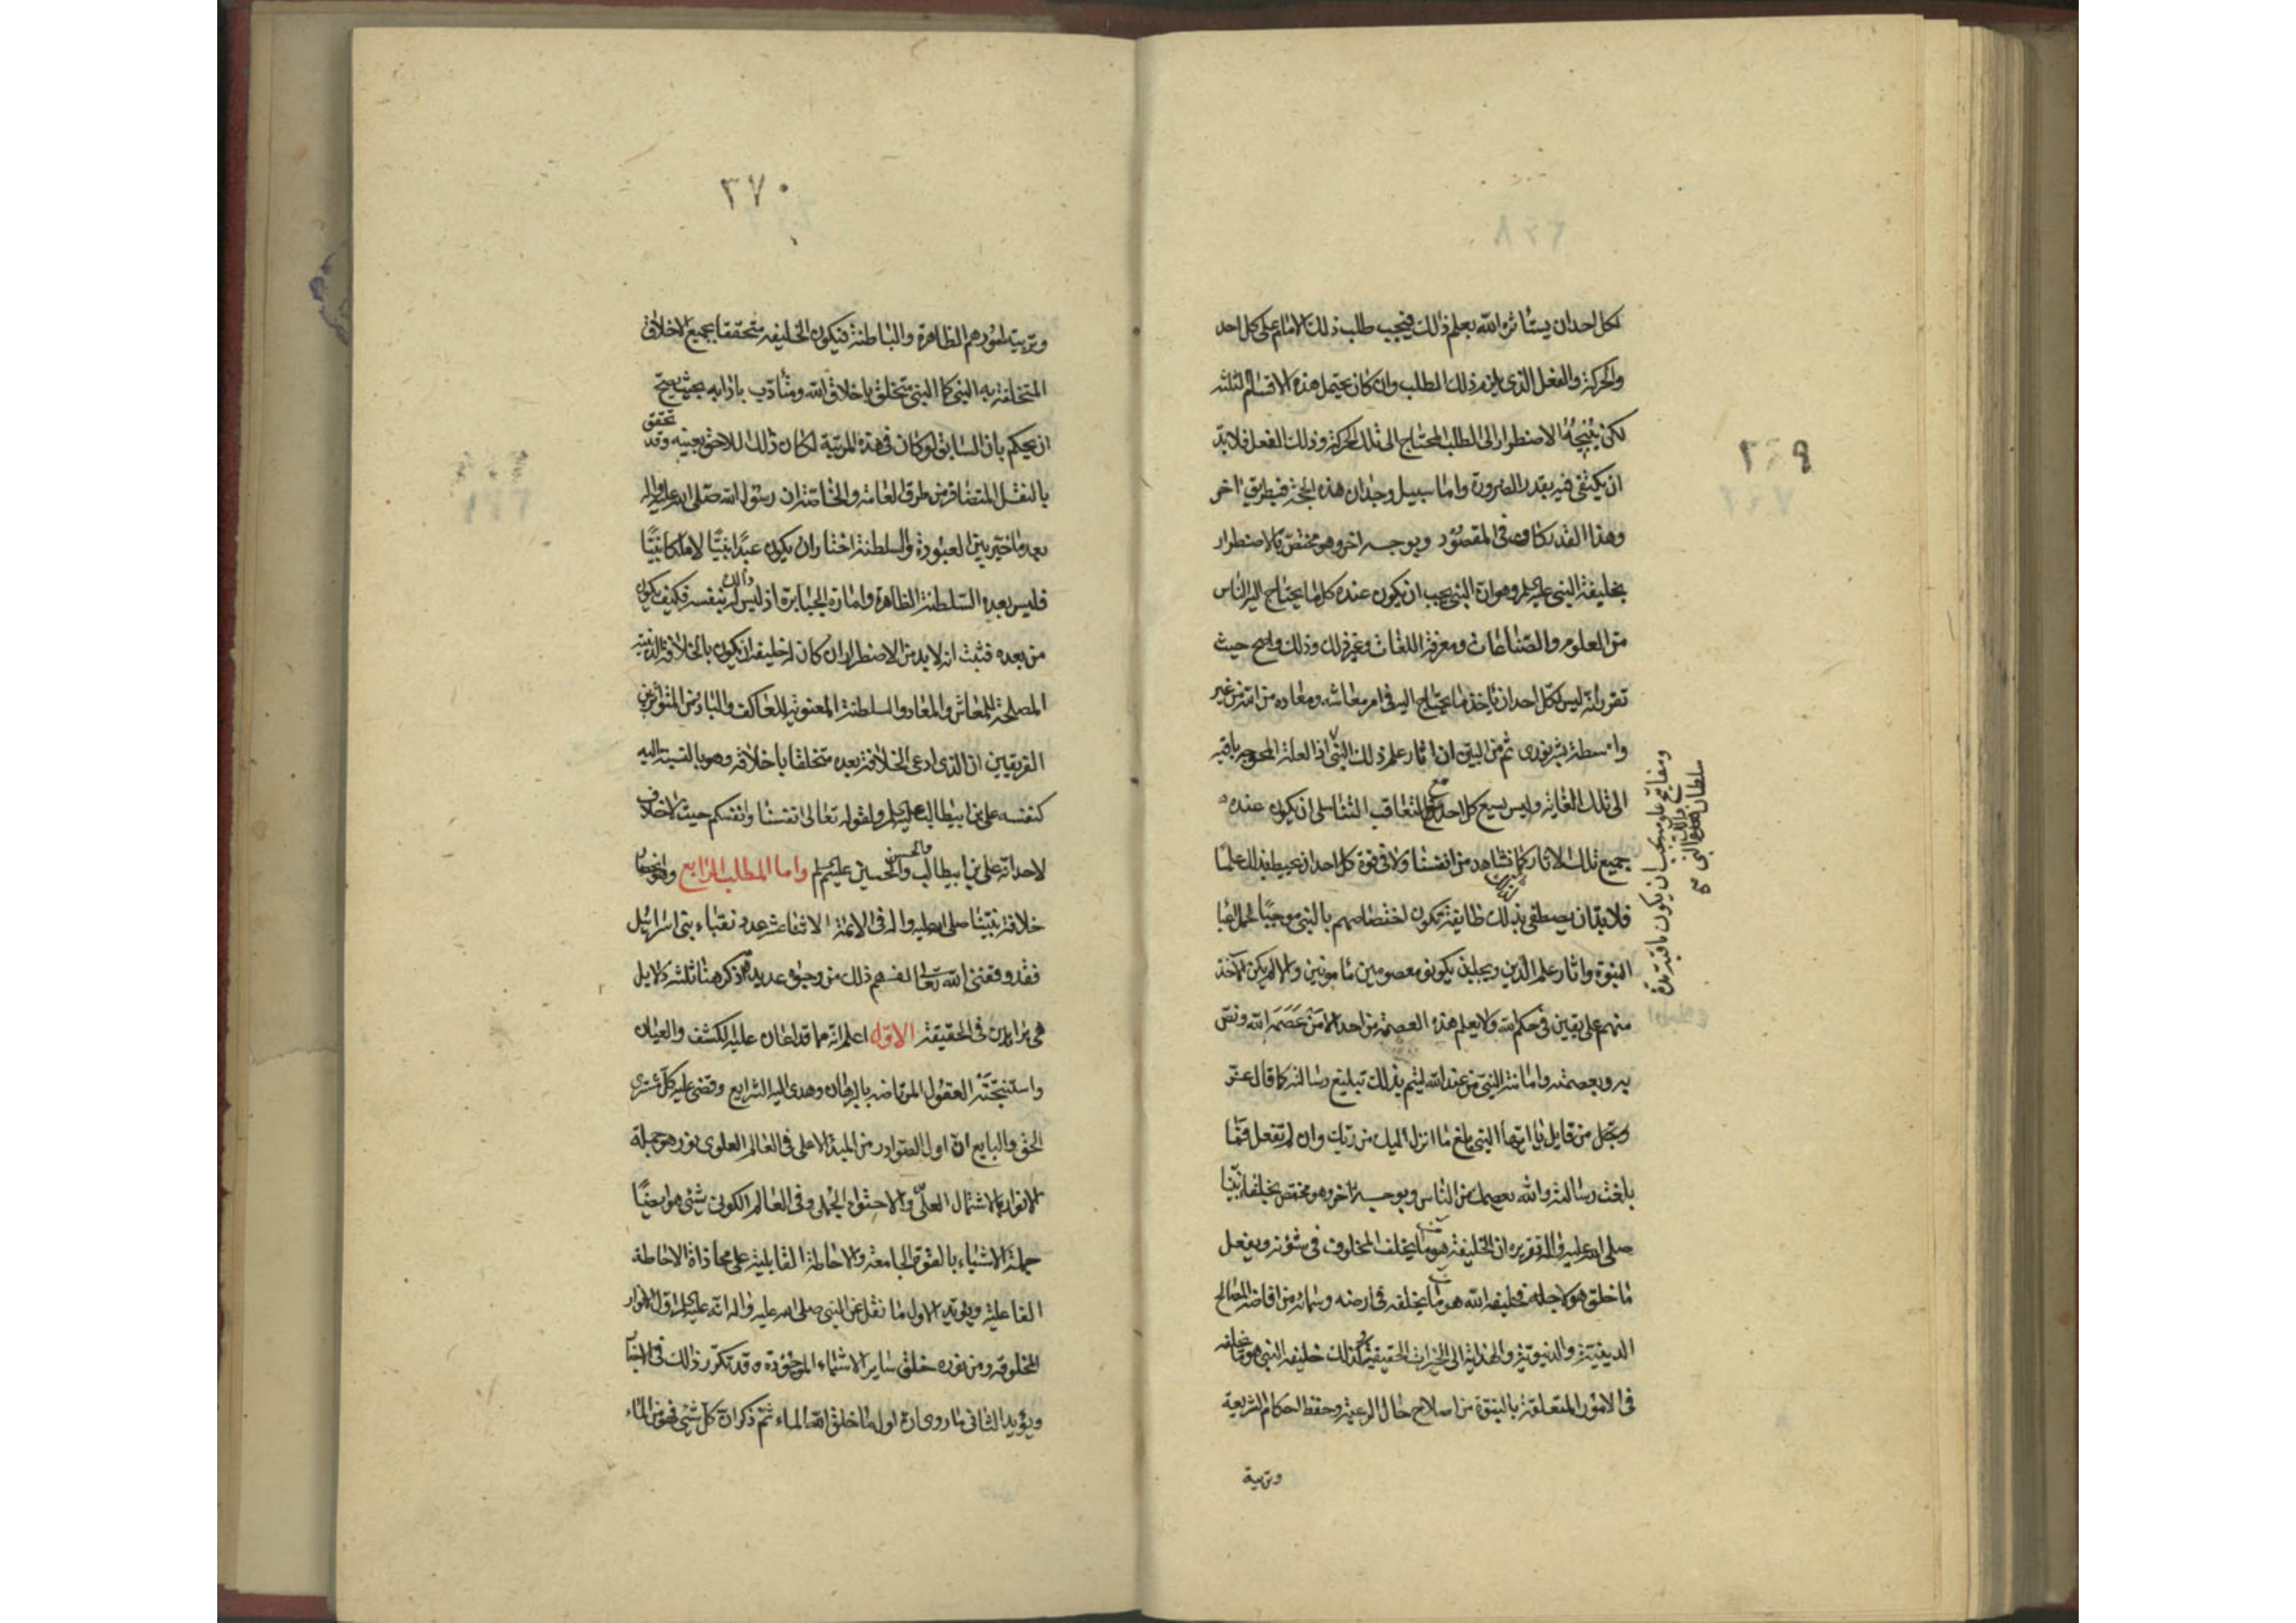 ٣٦٩
لكل احد ان يستاثره الله بعلم ذلك فيجب طلب ذلك الامام على كل احد
والحركة والفعل الذى يلزم ذلك المطلب وان كان يحتمل هذه الاقسام الثلثه
لكن نتيجة الاضطرار الى الطلب المحتاج الى تلك الحركة وذلك الفعل فلا بدّ
ان يكتفى فيه بقدر الضرورة واما سبيل وجدان هذه فبطريق اخر
وهذا القدر كاف فى المقصود وبوجه اخر وهو مختص بالاضطرار
بخليفة النبى عليه السلم وهو ان النبى يجب ان يكون عنده كل ما يحتاج اليه الناس
من العلوم والصناعات ومعرفة اللغات وغير ذلك وذلك واضح حيث
تقرر انه ليس لكل احد ان ياخذ ما يحتاج اليه فى امر معاشه ومعاده من الله من غير
واسطة بشر نورى ثم من البين ان اثار علم ذلك النبى اذ العلة المحوجه باقيه
الى تلك الغاية وليس يسع كل احد مع التعاقب التناسلى ان يكون عنده
جميع تلك الاثار كما نشاهد من انفسنا ولا فى قوة كل احد ان يحيط بذلك علما
فلا بد ان يصطفى بذلك طايفة تكون اختصاصهم بالنبى موجبا
النبوة واثار علم الدين ويجب ان يكونوا معصومين مامونين والا لم يكن الاخذ
منهم على يقين فى حكم الله ولا يعلم هذه العصمة من احد الا من عَصَمَه الله ونص
به وبعصمته وامانته النبى من عند الله ليتم بذلك تبليغ رسالته كما قال عز
وجل من قايل يا ايها النبى بلغ ما انزل اليك من ربك وان لم تفعل فما
بلغت رسالته والله يعصمك من الناس وبوجه اخر وهو مختص بخليفة نبينا
صلى الله عليه واله تقريره ان الخليفة هو ما يخلف المخلوف فى شؤنه ويفعل
ما خلق هو لاجله فخليفة الله هو ما يخلفه فى ارضه وسمائه من افاضة المصالح
الدينية والدنيوية والهداية الى الخيرات الحقيقية وكذلك خليفة النبى هو ما يخلفه
فى الامور المتعلقة بالنبوة من اصلاح حال الرعية وحفظ احكام الشريعة
وتربية
٣٧٠
وتربية امورهم الظاهرة والباطنة فيكون الخليفه متحققا بجميع الاخلاق
المتخلقة به النبى كما النبى متخلق باخلاق الله ومتأدّب بادابه بحيث يصح
ان يحكم بان السابق لو كان فى هذه المرتبة لكان ذلك للاحق بعينه وقد تحقق
بالنقل المتضافر من طرق العامة والخاصة ان رسول الله صلى الله عليه واله
بعد ما خيّر بين العبودة والسلطنة اختار ان يكون عبدًا نبيًّا لا ملكا نبيًّا
فليس بعده السّلطنة الظاهرة وامارة الجبابرة اذ ليس ذلك له بنفسه فكيف يكون
من بعده فثبت انه لا بد من الاضطرار ان كان له خليفة ان يكون بالخلافة الدينيه
المصلحة للمعاش والمعاد والسلطنة المعنوية للعاكف والباد ومن المتواتر بين
الفريقين ان الذى ادعى الخلافة بعده متخلقا باخلاقه وهو بالنسبة اليه
كنفسه على بن ابيطالب عليه السلم ولقوله تعالى انفسنا وانفسكم حيث لا خلاف
لاحد انه على بن ابيطالب والحسن والحسين عليهم السلم واما المطلب الرابع وهو انحصار
خلافة نبيّنا صلى الله عليه واله فى الائمة الاثنا عشر عدد نقباء بنى اسرائيل
فقد وفقنى الله تعالى لفهم ذلك من وجوه عديدة اذكر هنا ثلثه دلايل
هى براهين فى الحقيقة الاوّل اعلم انه مما قد اعان عليه الكشف والعيان
واستنتجَتْه العقول المرتاضه بالبرهان وهدى اليه الشرايع وقضى عليه كل مشترى
الحق والبايع ان اول الصوادر من المبدا الاعلى فى العالم العلوى نور هو جملة
الانوار بالاشتمال العلّى والاحتواء الجملى وفى العالم الكونى شىء هو ايضًا
جملة الاشياء بالقوة الجامعة والاحاطة القابلية على محاذاة الاحاطة
الفاعلية ويؤيد الاول ما نقل عن النبى صلى الله عليه واله انه عليه السلم اول الانوار
المخلوقه ومن نوره خلق ساير الاشياء الموجودة وقد تكرر ذلك فى الاخبار
ويؤيد الثانى ما روى ان اول ما خلق الله الماء ثم ذكر ان كل شىء فهو من الماء